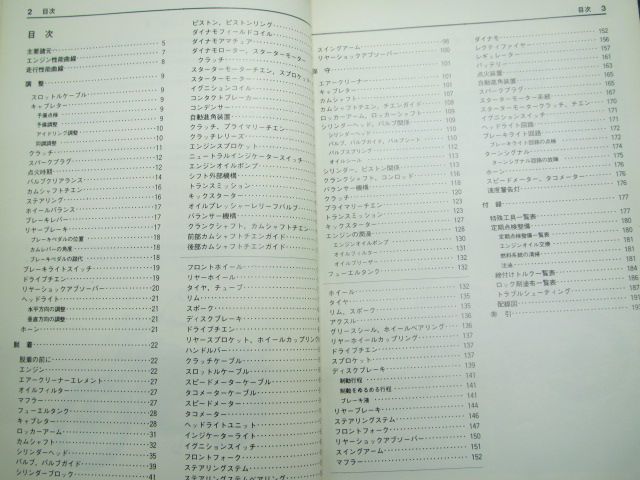 2 目次
目 次
主要諸元 5
エンジン性能曲線 7
走行性能曲線 8
調 整 9
スロットルケーブル 9
キャブレター 9
予備点検 9
予備調整 10
アイドリング調整 10
同調調整 10
クラッチ 11
スパークプラグ 12
点火時期 12
バルブクリアランス 14
カムシャフトチエン 16
ステアリング 16
ホイールバランス 17
ブレーキレバー 17
リヤーブレーキ 17
ブレーキペダルの位置 18
カムレバーの角度 18
ブレーキペダルの踏代 18
ブレーキライトスイッチ 19
ドライブチエン 19
リヤーショックアブソーバー 20
ヘッドライト 21
水平方向の調整 21
垂直方向の調整 21
ホーン 21
脱 着 22
脱着の前に 22
エンジン 22
エアークリーナーエレメント 27
オイルフィルター 27
マフラー 27
フューエルタンク 28
キャブレター 28
ロッカーアーム 31
カムシャフト 32
シリンダーヘッド 35
バルブ、バルブガイド 39
シリンダーブロック 41
ピストン、ピストンリング
ダイナモフィールドコイル
ダイナモアマチュア
ダイナモローター、スターターモーター
クラッチ
スターターモーターチエン、スプロケット
スターターモーター
イグニションコイル
コンタクトブレーカー
コンデンサー
自動進角装置
クラッチ、プライマリーチエン
クラッチレリーズ
エンジンスプロケット
ニュートラルインジケータースイッチ
エンジンオイルポンプ
シフト外部機構
トランスミッション
キックスターター
オイルプレッシャーレリーフバルブ
バランサー機構
クランクシャフト、カムシャフトチエン
前部カムシャフトチエンガイド
後部カムシャフトチエンガイド
フロントホイール
リヤーホイール
タイヤ、チューブ
リム
スポーク
ディスクブレーキ
ドライブチエン
リヤースプロケット、ホイールカップリング
ハンドルバー
クラッチケーブル
スロットルケーブル
スピードメーターケーブル
タコメーターケーブル
スピードメーター
タコメーター
ヘッドライトユニット
インジケーターライト
イグニションスイッチ
フロントフォーク
ステアリングステム
ステアリングステムベアリング
目次 3
スイングアーム 98
リヤーショックアブソーバー 100
保 守 101
エアークリーナー 101
キャブレター 101
カムシャフト 107
カムシャフトチエン、チエンガイド 108
ロッカーアーム、ロッカーシャフト 109
シリンダーヘッド、バルブ関係 109
シリンダーヘッド 109
バルブ、バルブガイド、バルブシート 110
バルブスプリング 112
オイルシール 113
シリンダー、ピストン関係 113
クランクシャフト、コンロッド 116
バランサー機構 118
クラッチ 120
プライマリーチエン 122
トランスミッション 123
キックスターター 127
エンジンの潤滑 128
エンジンオイルポンプ 130
オイルフィルター 131
オイルブリーザー 132
フューエルタンク 132
ホイール 132
タイヤ 135
リム、スポーク 135
アクスル 136
グリースシール、ホイールベアリング 136
リヤーホイールカップリング 137
ドライブチエン 137
スプロケット 137
ディスクブレーキ 139
制動行程 141
制動をゆるめる行程 141
ブレーキ液 141
リヤーブレーキ 144
ステアリングステム 146
フロントフォーク 147
リヤーショックアブソーバー 150
スイングアーム 151
マフラー 152
ダイナモ 152
レクティファイヤー 156
レギュレーター 161
バッテリー 163
点火装置 163
自動進角装置 165
スパークプラグ 165
スターターモーター系統 166
スターターモータークラッチ、チエン 170
イグニションスイッチ 171
ヘッドライト回路 171
ブレーキライト回路 172
ブレーキライト回路の点検 174
ターンシグナル 174
ターンシグナル回路の故障 175
ホーン 176
スピードメーター、タコメーター 176
速度警告灯 176
付 録 177
特殊工具一覧表 177
定期点検整備 180
定期点検整備一覧表 180
エンジンオイル交換 181
燃料系統の清掃 181
注油 181
締付けトルク一覧表 184
ロック剤塗布一覧表 186
トラブルシューティング 187
配線図 191
索 引 193